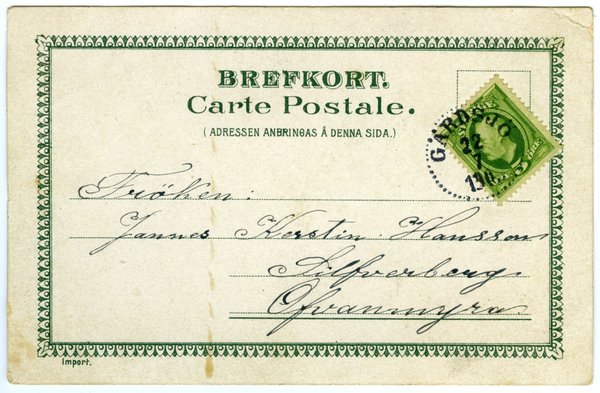 BREFKORT.
Carte Postale.
(ADRESSEN ANBRINGAS Å DENNA SIDA.)
GÅRDSJÖ
22
7
190
Fröken:
Jannes Kerstin Hanssons
Silfverberg
Ofvanmyra
Import.